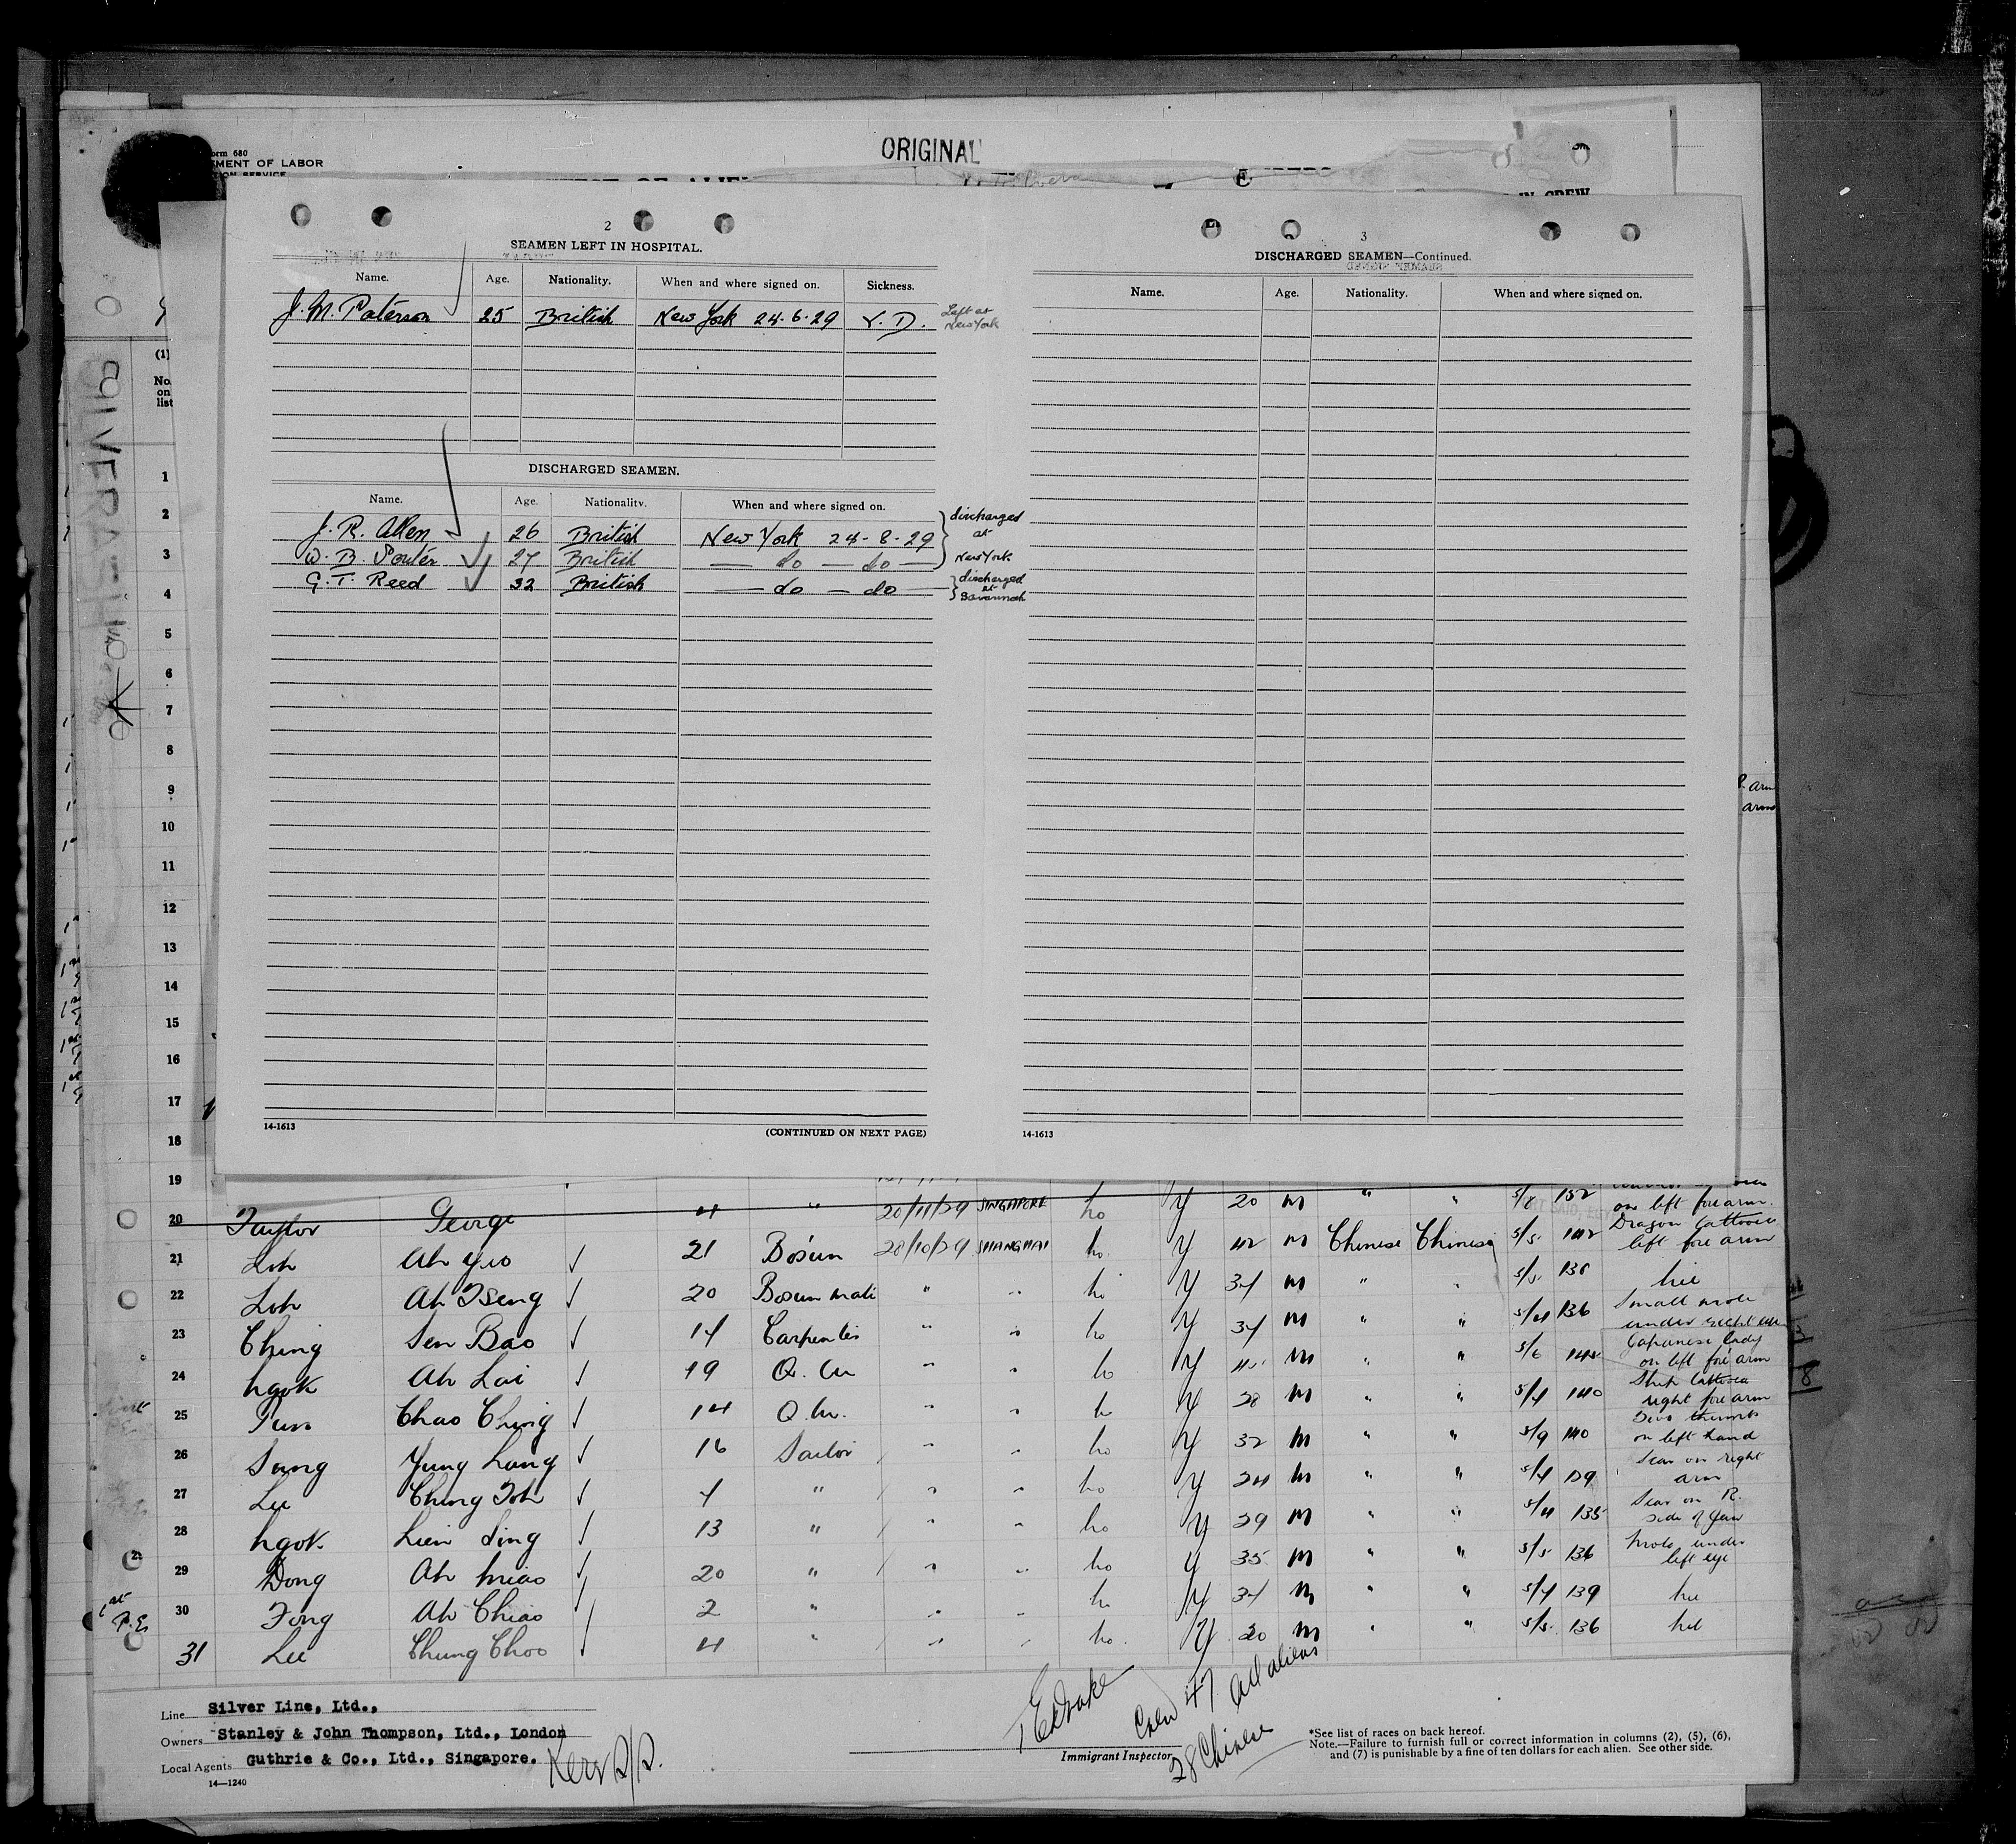 ORIGINAL
Form 680
MENT OF LABOR
2
SEAMEN LEFT IN HOSPITAL.
Name. Age. Nationality. When and where signed on. Sickness.
J. M. Paterson 25 British New York 24.6.29 V. D. Left at New York
DISCHARGED SEAMEN.
Name. Age. Nationality. When and where signed on.
J. R. Allen 26 British New York 24-8-29 discharged at New York
W. B. Porter 27 British — do — do —
G. T. Reed 32 British — do — do — discharged at Savannah
14-1613 (CONTINUED ON NEXT PAGE)
3
DISCHARGED SEAMEN—Continued.
Name. Age. Nationality. When and where signed on.
14-1613
(1)
No. on list
1
2
3
4
5
6
7
8
9
10
11
12
13
14
15
16
17
18
19
20 Taylor George 4 " 20/11/29 SINGAPORE no y 20 m " " 152 on left forearm.
21 Loh Ah Yuo 21 Bosun 28/10/29 SHANGHAI no y 42 m Chinese Chinese 5/5 142 Dragon tattooed left fore arm
22 Loh Ah Tseng 20 Bosun mate " " no y 34 m " " 5/5 nil
23 Ching Sen Bao 14 Carpenter " " no y 34 m " " 5/4 136 Small mole under right eye
24 Ngok Ah Lai 19 Q. M " " no y m " " 5/6 145 Japanese lady on left fore arm
25 Chao Ching 14 Q. M. " " no y 28 m " " 5/4 140 Ship tattooed right fore arm
26 Yung Lang 16 Sailor " " no y 32 m " " 5/9 140 Two thumbs on left hand
27 Lee Ching Toh 4 " " " no y 24 m " " 5/4 129 Scar on right arm
28 Ngok Lien Sing 13 " " " no y 29 m " " 5/4 135 Scar on R. side of jaw
29 Dong Ah Miao 20 " " " no y 35 m " " 5/5 136 Mole under left eye
30 Fong Ah Chiao 2 " " " no y 34 m " " 5/4 139 nil
31 Lee Chung Choo 4 " " " no y 20 m " " 5/5 136 nil
Line Silver Line, Ltd.,
Owners Stanley & John Thompson, Ltd., London
Local Agents Guthrie & Co., Ltd., Singapore.
14—1240
Crew 47 All aliens
28 Chinese
Immigrant Inspector
*See list of races on back hereof.
Note.—Failure to furnish full or correct information in columns (2), (5), (6),
and (7) is punishable by a fine of ten dollars for each alien. See other side.